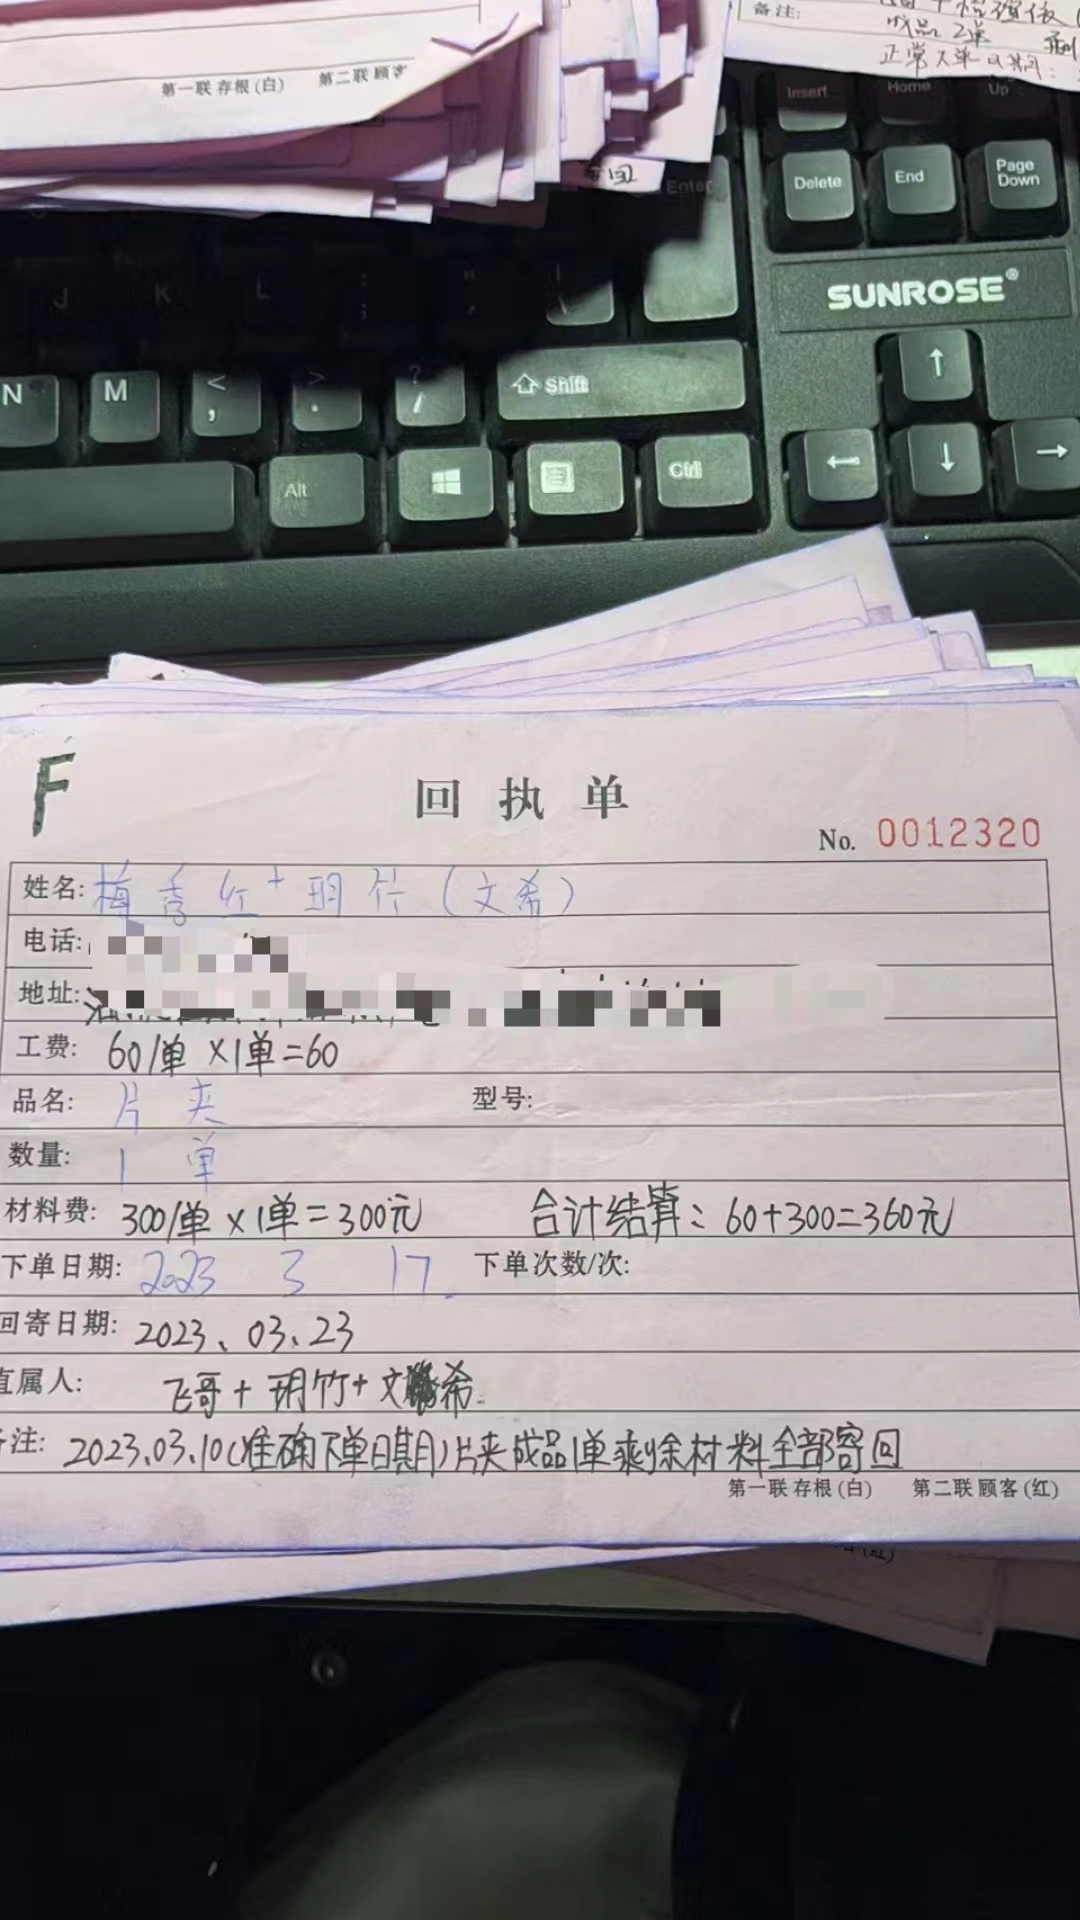 备注:
成品2单
正常大单日期:
第一联 存根(白) 第二联 顾客
Insert Home Up
Delete End Page Down
Enter
SUNROSE®
J K L : ; " ' | \
N M < , > . ? / Shift
Alt Ctrl
F
回执单
No. 0012320
姓名: 梅秀红+玥竹(文希)
电话:
地址:
工费: 60/单×1单=60
品名: 片夹 型号:
数量: 1单
材料费: 300/单×1单=300元 合计结算: 60+300=360元
下单日期: 2023 3 17. 下单次数/次:
回寄日期: 2023、03、23
直属人: 飞哥+玥竹+文希
注: 2023.03.10(准确下单日期)片夹成品1单剩余材料全部寄回
第一联 存根(白) 第二联 顾客(红)